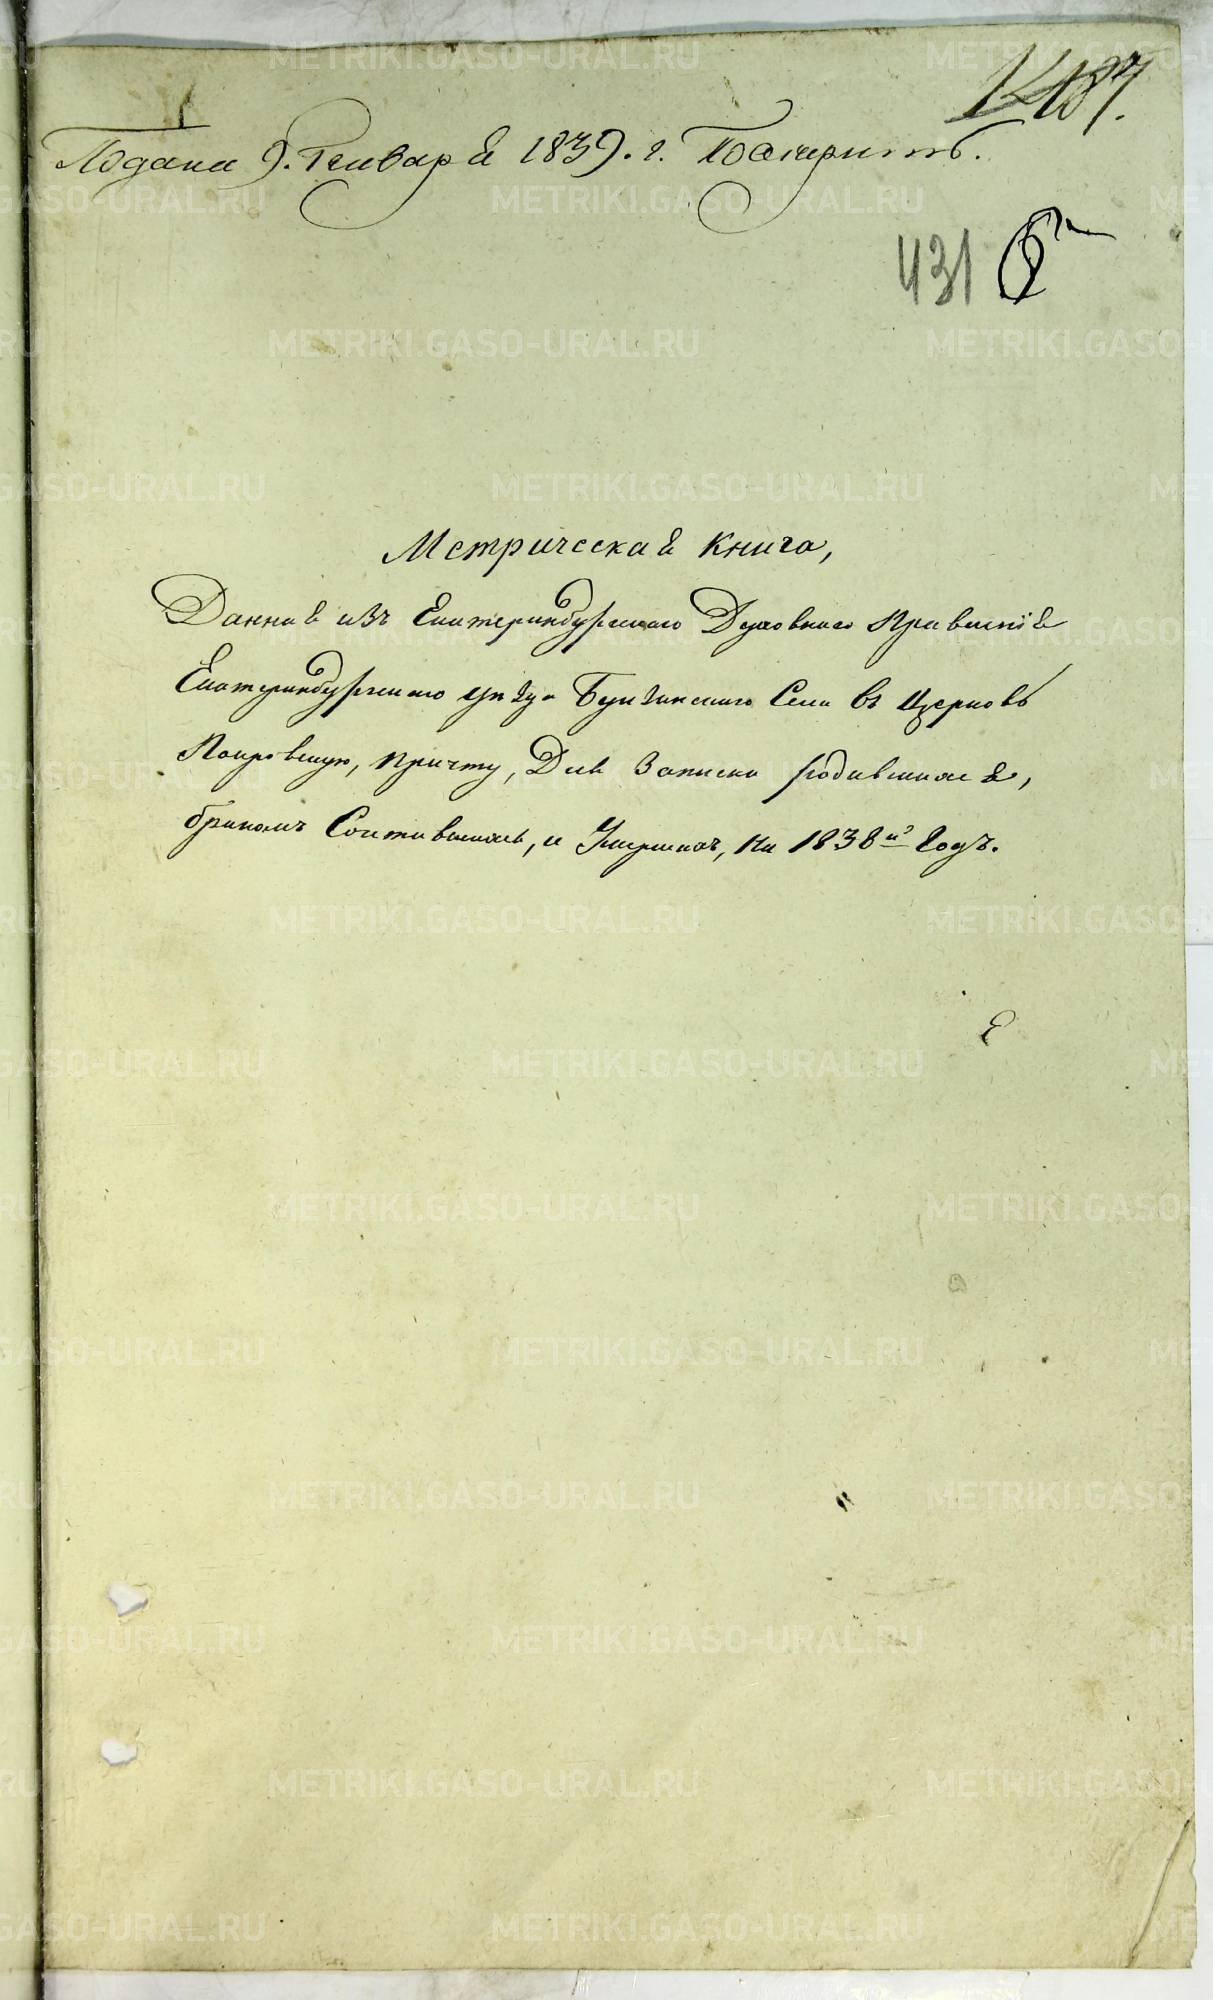 187.
Подана 9. Генваря 1839. г.
431
Метрическая Книга,
Данная изъ Екатеринбургскаго Духовнаго Правленія
Екатеринбургскаго уѣзда Бунзинскаго Села въ Церковь
Покровскую, причту, Для Записки родившихся,
бракомъ Сочитавшихся, и Умершихъ, на 1838й Годъ.